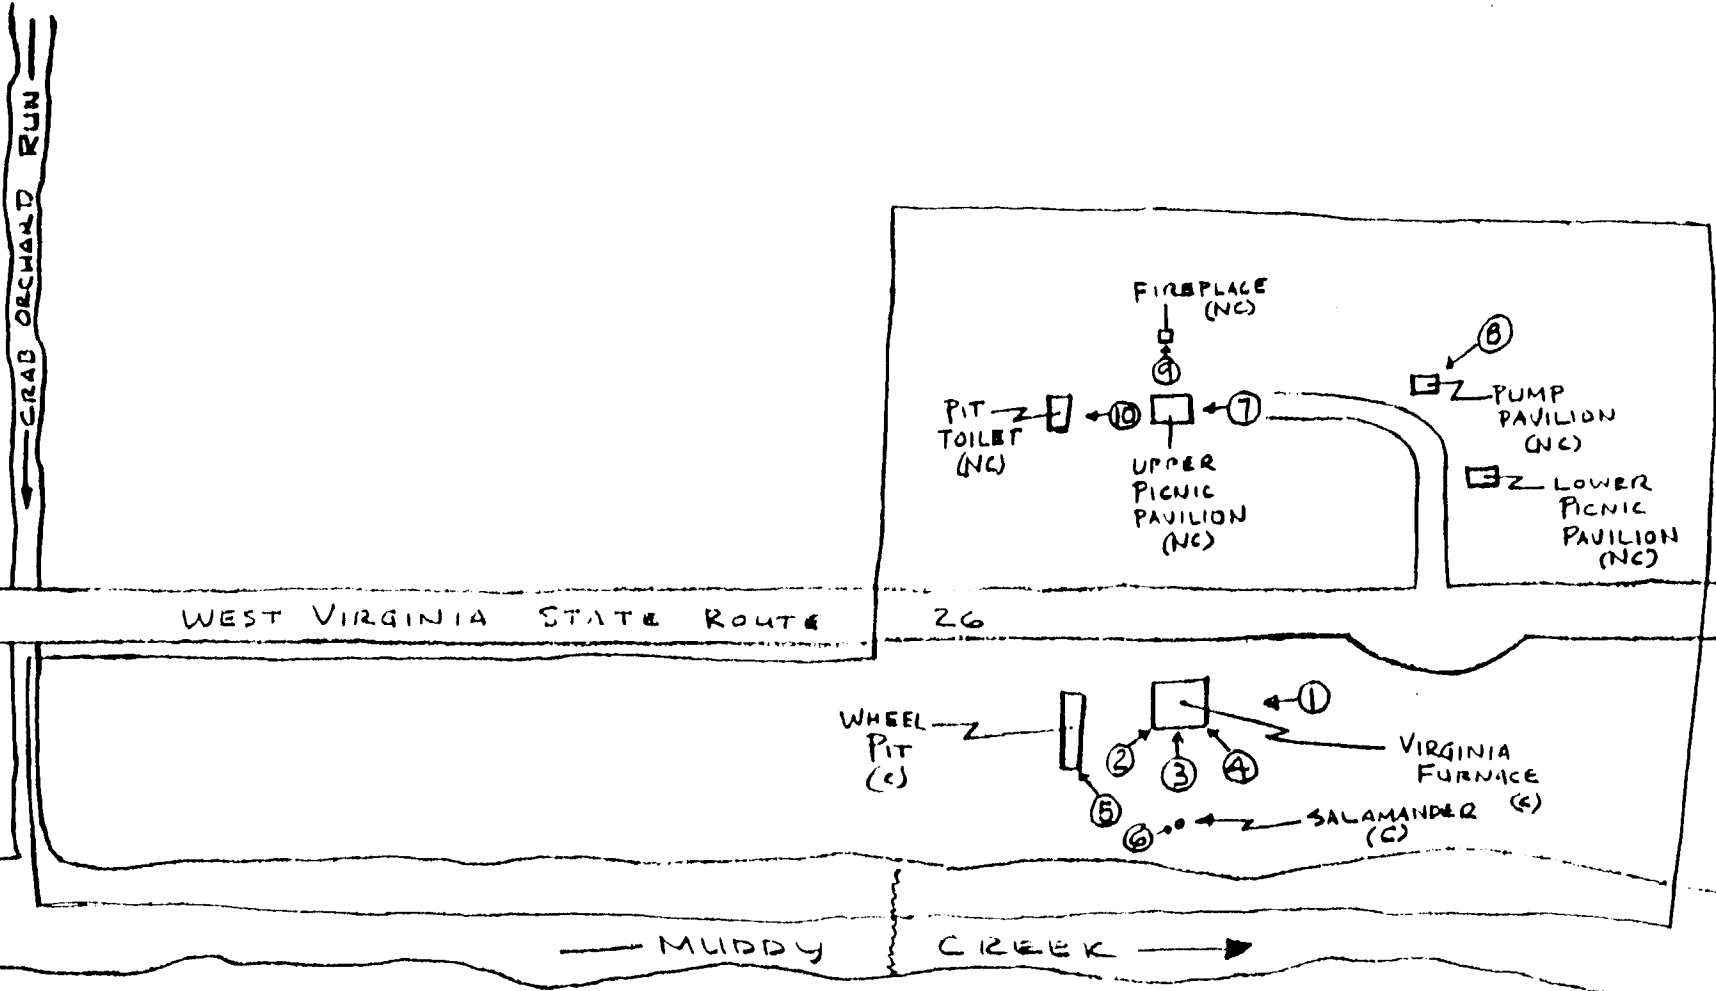 CRAB ORCHARD RUN
FIREPLACE
(NC)
8
9
PUMP
PAVILION
(NC)
PIT
TOILET
(NC)
10
7
UPPER
PICNIC
PAVILION
(NC)
LOWER
PICNIC
PAVILION
(NC)
WEST VIRGINIA STATE ROUTE 26
1
WHEEL
PIT
(C)
2
3
4
VIRGINIA
FURNACE
(C)
5
6
SALAMANDER
(C)
MUDDY CREEK